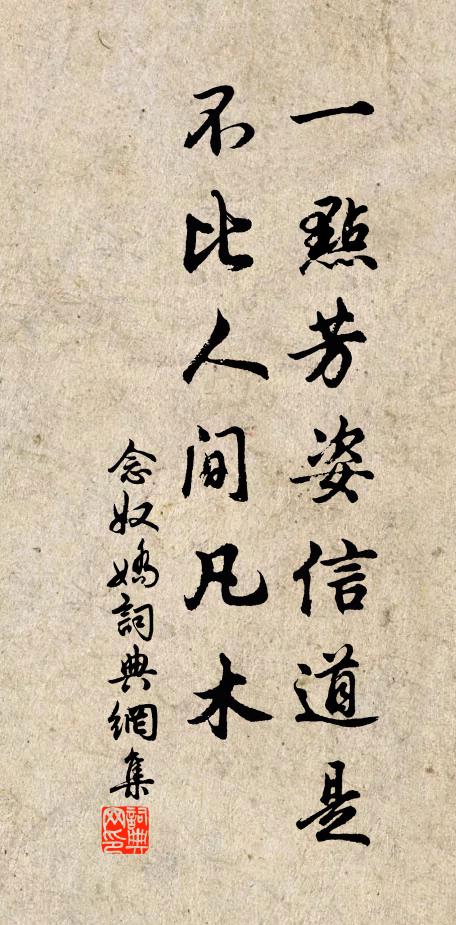 一點芳姿信道是
不比人間凡木
念奴嬌詞典網集
詞典
网印